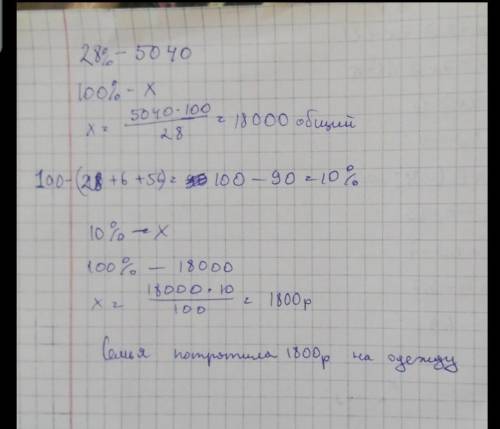 28% - 5040
100% - x
x = 5040·100 / 28 = 18000 общий
100-(28+6+56) = 100 - 90 = 10%
10% - x
100% - 18000
x = 18000·10 / 100 = 1800р
Семья потротила 1800р на одежду